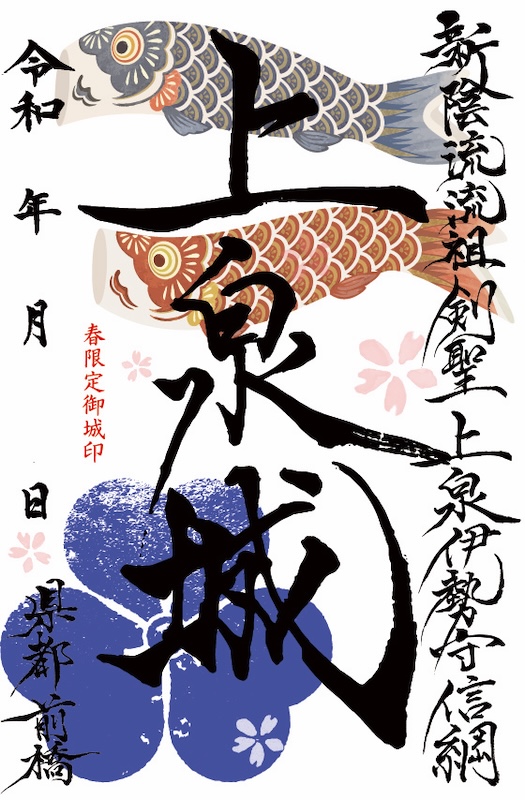 新陰流流祖剣聖上泉伊勢守信綱
上泉城
春限定御城印
令和 年 月 日
県都前橋